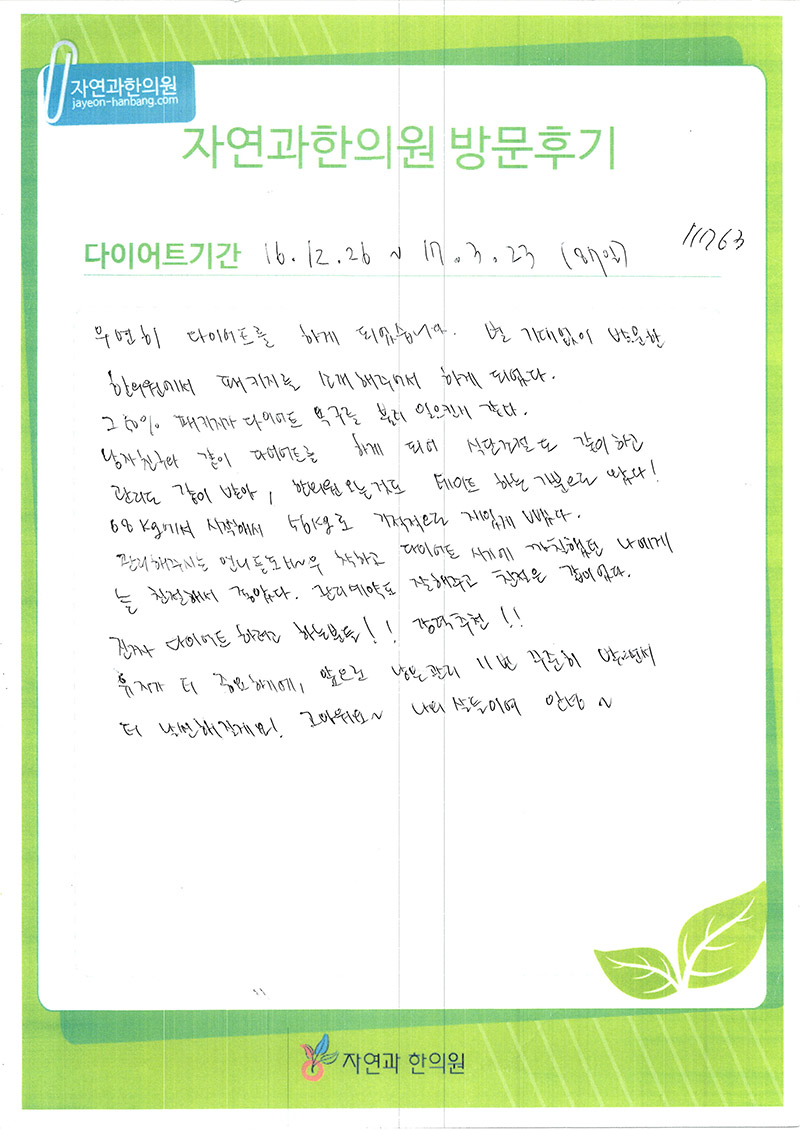 자연과한의원
jayeon-hanbang.com
자연과한의원 방문후기
다이어트기간 16.12.26 ~ 17.3.23 (87일)
11763
우연히 다이어트를 하게 되었습니다. 별 기대없이 방문한
한의원에서 패키지를 소개해주어서 하게 되었다.
그 50% 패키지가 다이어트 욕구를 불러 일으킨거 같다.
남자친구와 같이 다이어트를 하게 되어 식단조절도 같이하고
관리도 같이 받아, 한의원 오는것도 데이트 하는 기분으로 왔다!
68kg에서 시작해서 56kg로 기적적으로 재밌게 뺐다.
관리해주시는 언니들도 매우 착하고 다이어트 시기에 나에게
늘 친절해서 좋았다. 관리예약도 잘해주고 친절은 갑이었다.
진짜 다이어트 하려고 하는분들!! 강력추천!!
유지가 더 중요하기에, 앞으로 남은관리 11번 꾸준히 받으면서
더 날씬해질게요! 고마워요~ 나의 살들이여 안녕~
자연과 한의원